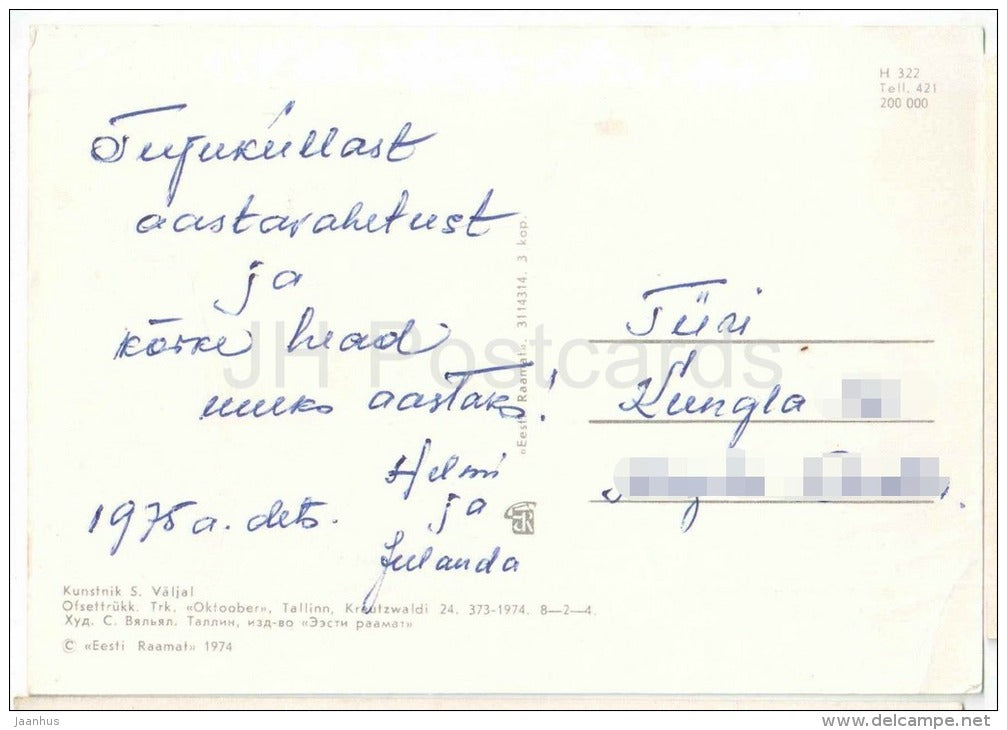 H 322
Tell. 421
200 000
Tujuküllast
aastavahetust
ja
kõike head
uueks aastaks!
Helmi
ja
Julanda
1975 a. dets.
«Eesti Raamat». 3114314. 3 kop.
ER
Türi
Kungla
Kunstnik S. Väljal
Ofsettrükk. Trk. «Oktoober», Tallinn, Kreutzwaldi 24. 373-1974. 8—2—4.
Худ. С. Вяльял. Таллин, изд-во «Ээсти раамат»
© «Eesti Raamat» 1974
JH Postcards
jaanhus
www.delcampe.net